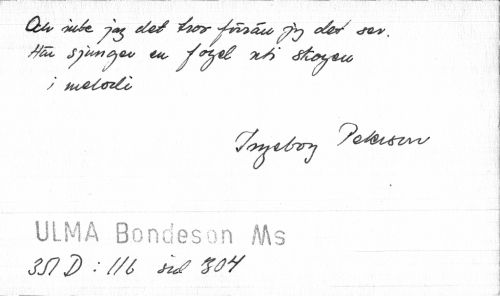 Och inte jag det tror förrän jag det ser.
Hör sjunger en fogel uti skogen
i melodi
Ingeborg Peterson
ULMA Bondeson Ms
351 D : 116 sid 304